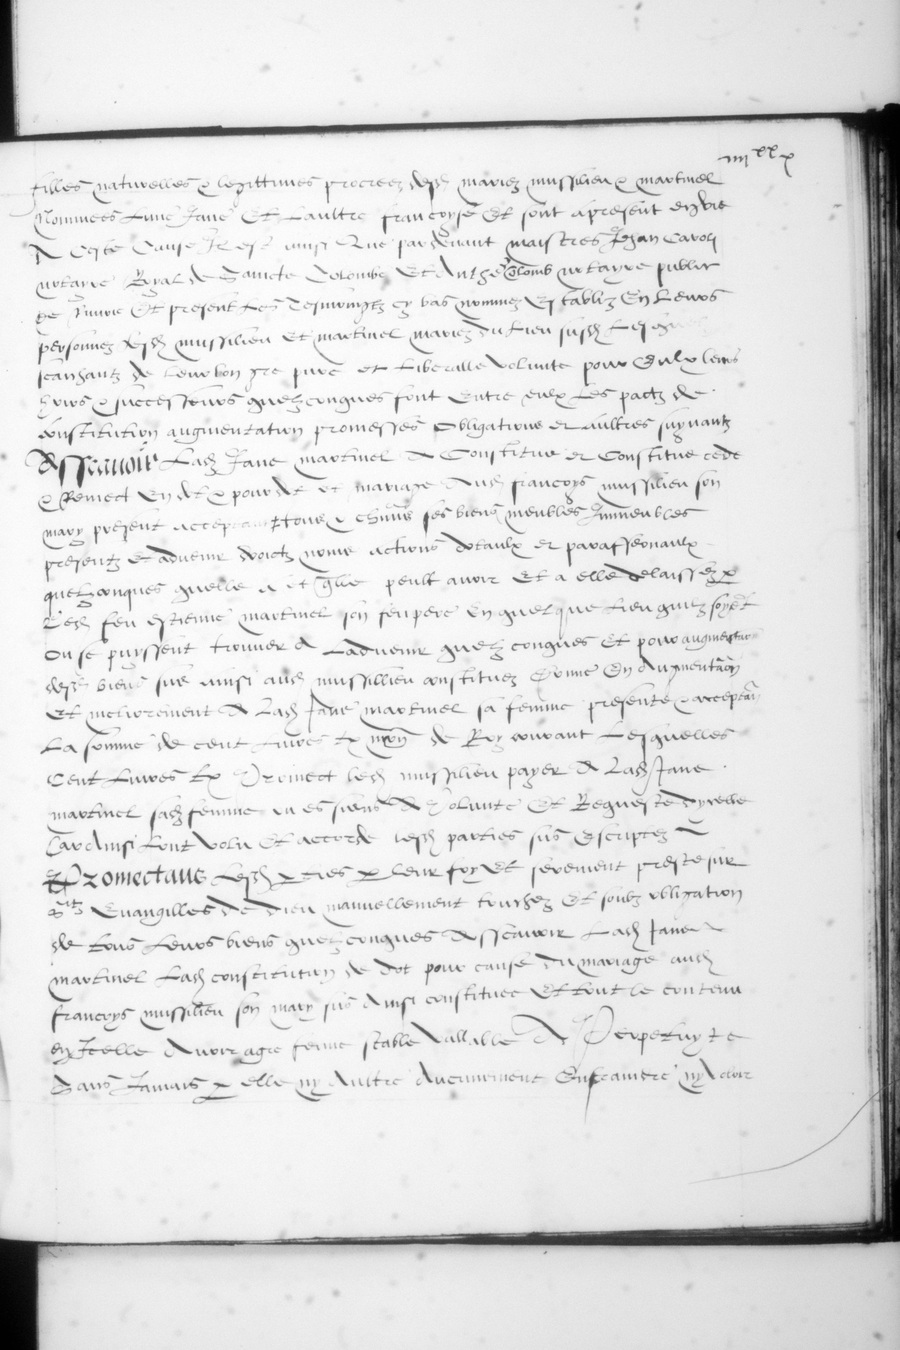 iiii xx x
filles naturelles & legittimes procrees desd mariez mussilieu & martinel
Nommees Lune Jane Et Laultre francoyse Et sont apresent en vie
A Ceste Cause Il est ainsi Que pardevant maistres Jehan Caroli
notaire Royal de Saincte Colombe Et Anthe Colomb notayre public
de Et present Les Tesmoingtz cy bas nommez Establiz En Leurs
personnes desd mussilieu Et martinel mariez du Lieu susd Lesquelz
scaichantz de Leur bon gre pure et Liberalle volunte pour Eulx leurs
hoirs & successeurs quelzconques font Entre eulx Les pactz de
constitution augmentation promesses Obligations et aultres suyvantz
Asscavoir Lad Jane martinel A Constitue et Constitue cede
& Remect En dot & pour dot et mariage Aud francoys mussilieu son
mary present acceptant tous & chūns ses biens meubles Immeubles
presentz Et advenir droictz noms actions dotaulx et paraffernaulx
quelzconques quelle a et qlle peult avoir Et a elle delaissez p
Led feu estienne martinel son feu pere En quelque Lieu quilz soyēt
Ou se puyssent trouver A Ladvenir quelzconques Et pour augmentation
desd biens sus ainsi aud mussilieu constituez Donne En Augmentaōn
Et meliorement A Lad Jane martinel sa femme presente & acceptāt
La somme de cent Livres tz de Roy courant Lesquelles
Cent Livres tz Promect led mussilieu payer A Lad Jane
martinel sad femme ou es siens A Volunte Et Requeste dycelle
Car Ainsi Lont Volu Et accorde lesd parties sus Escriptez
Promectans Lesd pties p Leur foy Et serement preste sur
stz Evangilles de Dieu manuellement touchez Et soubz obligation
de tous Leurs biens quelzconques Asscavoir Lad Jane
martinel Lad constitution de dot pour cause du mariage aud
francoys mussilieu son mary sus Ainsi constituee Et tout le contenu
en Icelle Avoir agre ferme stable Vallable A Perpetuyte
Sans Jamais p elle ny Aultre Aucunement Enfraindre ny Avoir